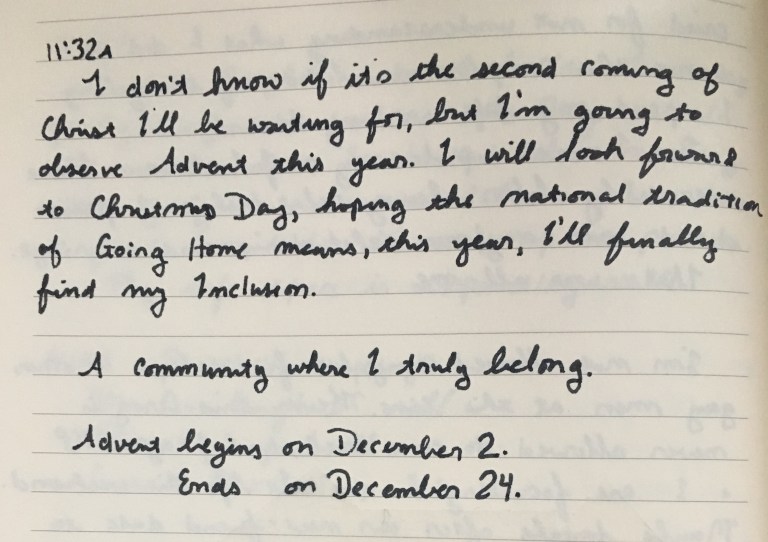 11:32A
I don't know if it's the second coming of
Christ I'll be waiting for, but I'm going to
observe Advent this year. I will look forward
to Christmas Day, hoping the national tradition
of Going Home means, this year, I'll finally
find my Inclusion.
A community where I truly belong.
Advent begins on December 2.
Ends on December 24.